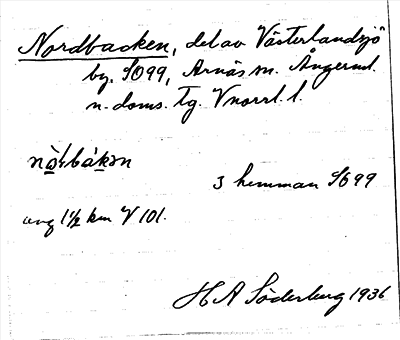 Nordbacken, del av Västerlandsjö
by. SO99, Arnäs sn. Ångerml.
n. doms. tg. Vnorrl. l.
3 hemman SO99
avg 1½ km V 101.
H A Söderberg 1936